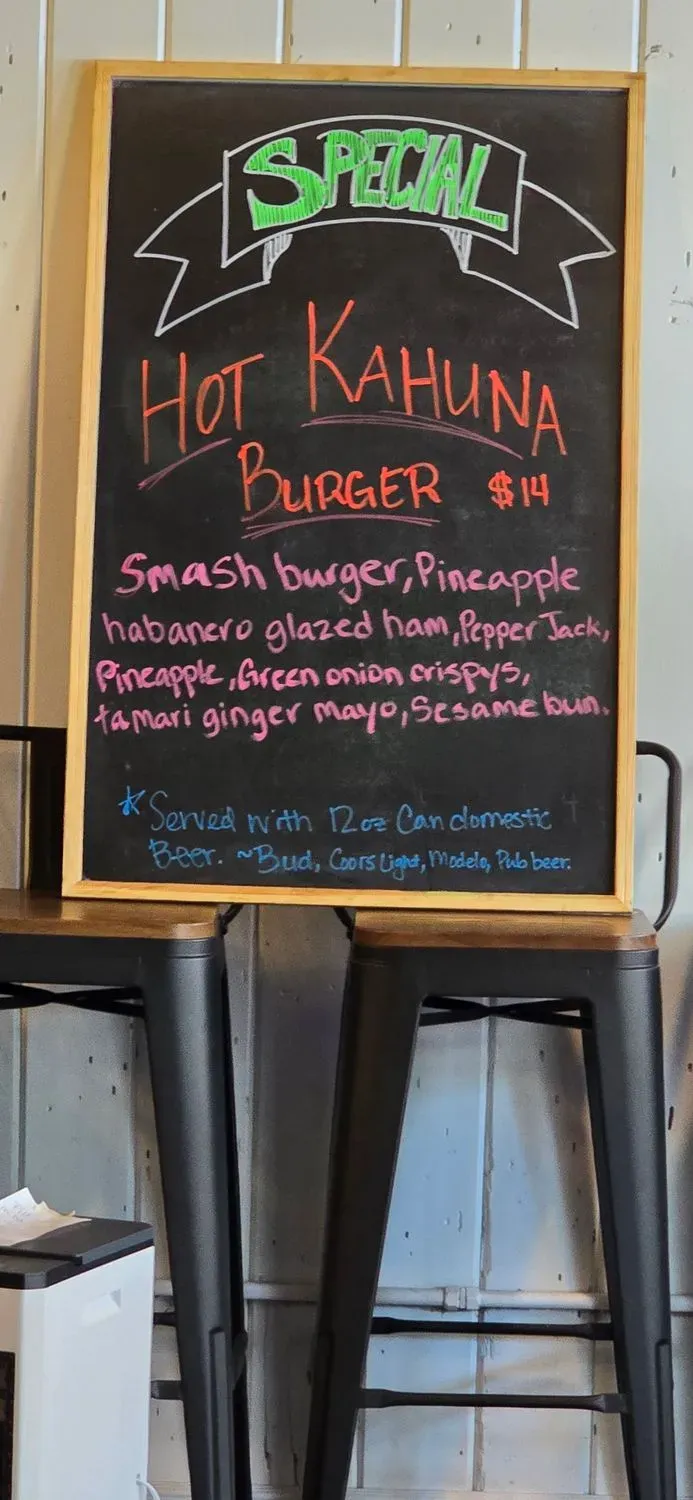 SPECIAL
HOT KAHUNA
BURGER $14
Smash burger, Pineapple
habanero glazed ham, Pepper Jack,
Pineapple, Green onion crispys,
tamari ginger mayo, Sesame bun.
* Served with 12oz Can domestic
Beer. ~Bud, Coors Light, Modelo, Pub beer.